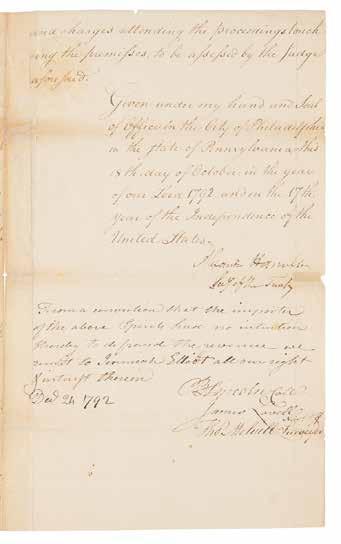 and charges attending the proceedings touch
ing the premisses, to be assessed by the Judge
aforesaid.
Given under my hand and Seal
of Office in the City of Philadelphia
in the state of Pennsylvania, this
18th day of October, in the year
of our Lord 1792. and in the 17th
year of the Independence of the
United States.
Hamilton
Secy of the Treasy
From a conviction that the importer
of the above Spirits had no intention
thereby to defraud the revenue we
remit to Jeremiah Elliot all our right
& interest therein
Decr 24 1792
B Lincoln Coll
James Lovell
Thos Melvill Surveyor